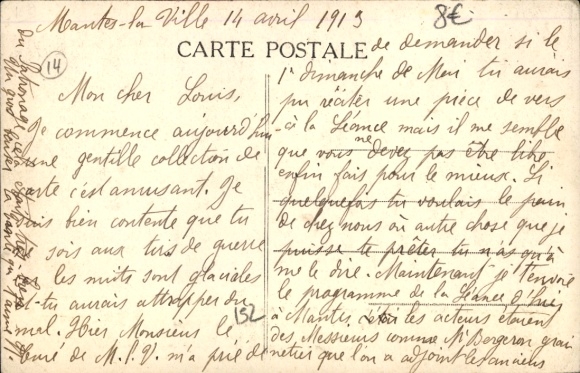 Mantes-la Ville 14 avril 1913
8€
CARTE POSTALE
14
Mon cher Louis,
Je commence aujourd'hui
une gentille collection de
carte c'est amusant. Je
suis bien contente que tu
sois aux tirs de guerre
les nuits sont glaciales
tu aurais attrapper du
mal. Hier Monsieur le
Curé de M.l.V. m'a prié de
152
de demander si le
1er dimanche de Mai tu aurais
pu réciter une pièce de vers
à la Séance mais il me semble
que vous ne devez pas être libre
enfin fais pour le mieux. Si
quelquefois tu voulais le
de chez nous où autre chose que je
puisse te prêter tu n'as qu'à
me le dire. Maintenant je t'envoie
le programme de la Séance d'hier
à Mantes, les acteurs étaient
des Messieurs comme Mr Bergeron grai
netier que l'on a adjoint les anciens
du Patronage, cela était très bien
Un gros baiser la Tante qui t'aime